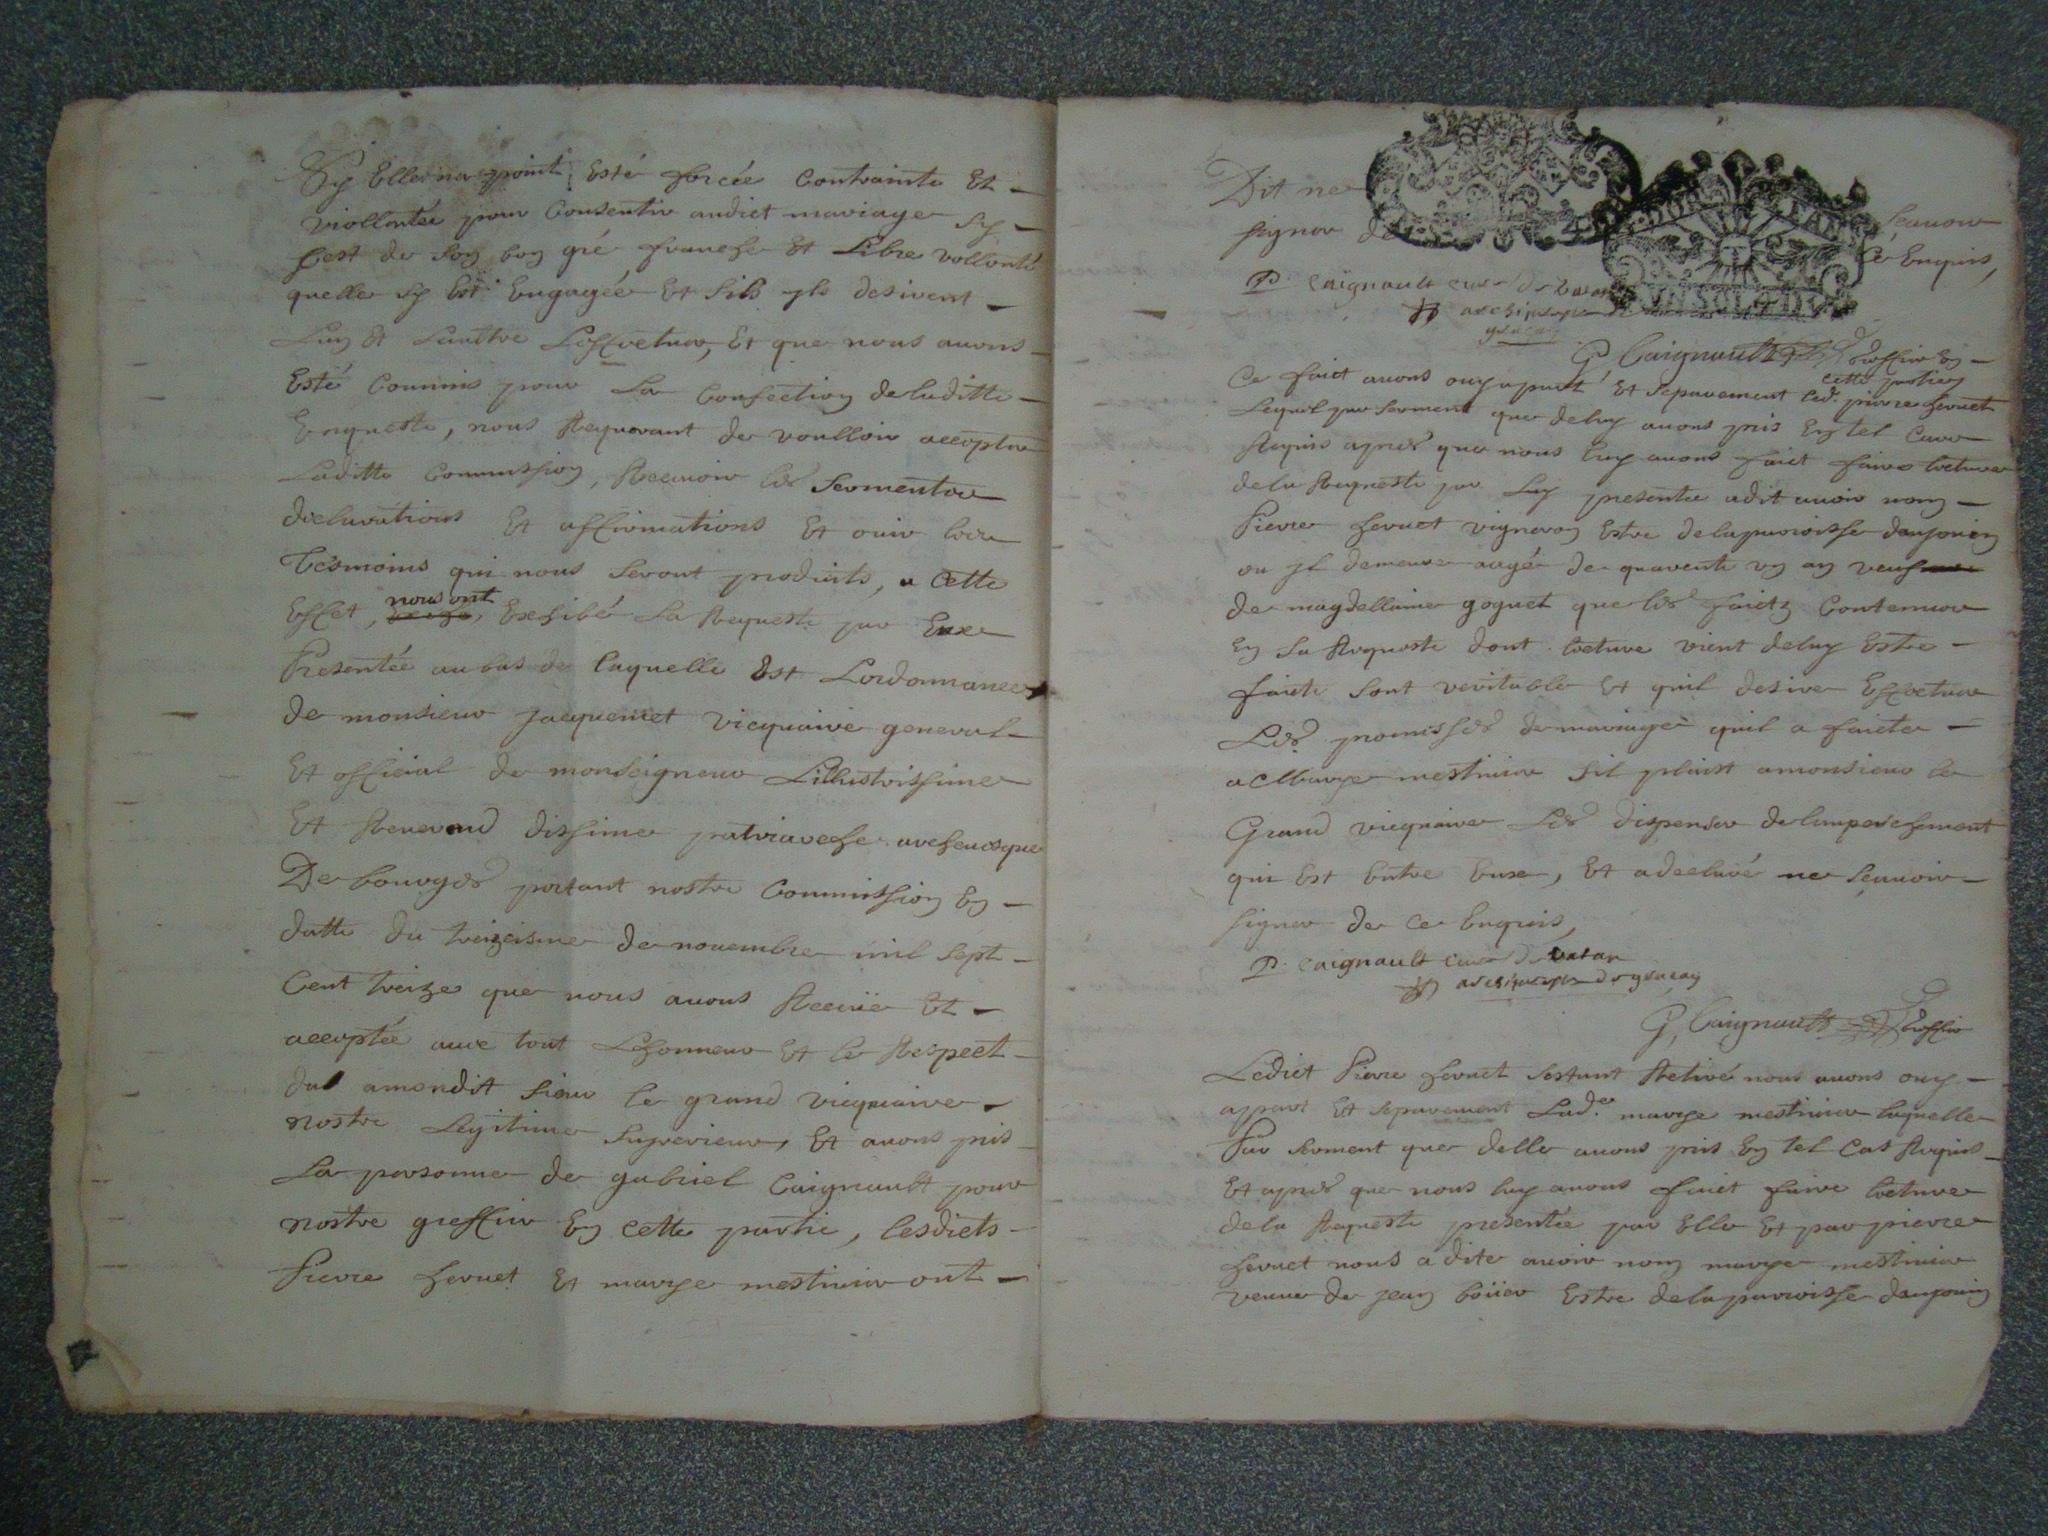 Sy Elle na point Esté forcée Contrainte Et
viollentée pour Consentir audict mariage sy
sest de son bon gré franche Et Libre vollonté
quelle sy Est Engagée Et sils yls desirent
Lun Et Lautre Leffectuer, Et que nous auons
Esté Commis pour La Confection de laditte
Enqueste, nous Requerant de voulloir accepter
Laditte Commission, Receuoir les serments
declarations Et affirmations Et ouir les
Tesmoins qui nous seront produits, a cette
Effet, nous ont Exhibé La Requeste par Eux
Presentée au bas de laquelle Est Lordonnance
de monsieur jacquemet vicquaire general
Et official de monseigneur Lillustrissime
Et Reuerend dissime patriarche archeuesque
De bourges portant nostre Commission En
datte du treiziesme de nouembre mil sept
Cent treize que nous auons Receüe Et
acceptée auec tout Lhonneur Et le Respect
dub amondit sieur le grand vicquaire
nostre Legitime superieur, Et auons pris
La personne de gabriel Caignault pour
nostre greffier En cette partie, lesdicts
Pierre heruet Et marye mestiuier ont
Dit ne sçauoir
signer de Ce Enquis,
P. Caignault curé de vatan
archiprestre de
graçay
G. Caignault Greffier En
cette partie
Ce faict auons ouy apart Et separement led. pierre heruet
Lequel par serment que de luy auons pris En tel Cas
Requis apres que nous luy auons faict faire lecture
de la Requeste par luy presentée a dit auoir nom
Pierre heruet vigneron Estre de la parroisse danjouin
ou yl demeure aagé de quarente un an veuf
de magdellaine goguet que les faictz Contenus
En sa Requeste dont lecture vient de luy Estre
faicte sont veritable Et quil desire Effectuer
Les promisses de mariage quil a faicte
a Marye mestiuier sil plaist a monsieur le
Grand vicquaire Les dispenser de lempeschement
qui Est Entre Eux, Et a declaré ne sçauoir
signer de ce Enquis,
P. Caignault curé de vatan
archiprestre de graçay
G. Caignault Greffier
Ledict Pierre heruet sestant Retiré nous auons ouy
apart Et separement Lade. marye mestiuier laquelle
Par serment que delle auons pris En tel Cas Requis
Et apres que nous luy auons faict faire lecture
de la Requeste presentée par Elle Et par pierre
heruet nous a dite auoir nom marye mestiuier
veuue de jean boüer Estre de la parroisse danjouin